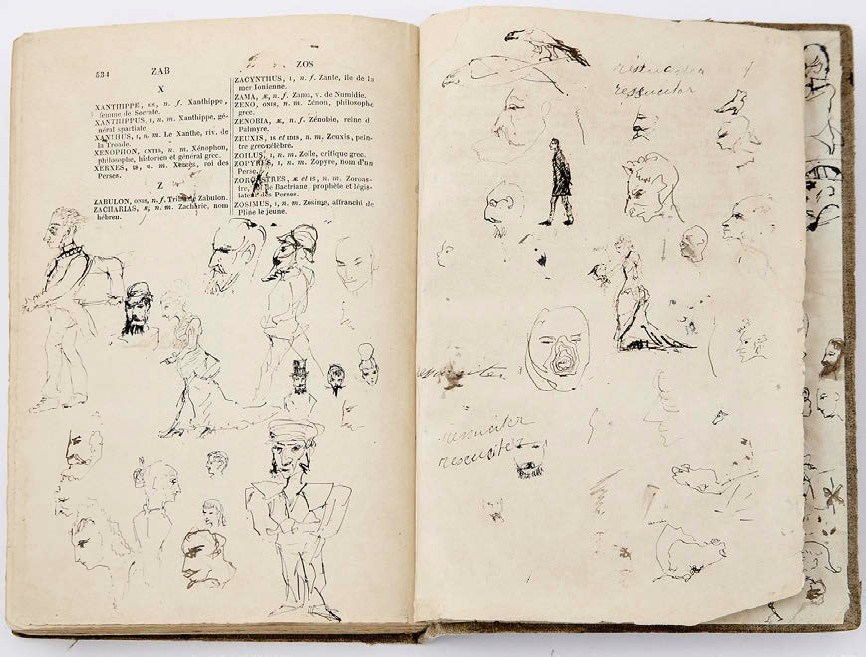 534 ZAB
X
XANTHIPPE, es, n. f. Xanthippe,
femme de Socrate.
XANTHIPPUS, i, n. m. Xanthippe, gé-
néral spartiate
XANTHUS, i, n. m. Le Xanthe, riv. de
la Troade.
XENOPHON, ontis, n. m. Xénophon,
philosophe, historien et général grec.
XERXES, is, n. m. Xercès, roi des
Perses.
Z
ZABULON, onis, n. f. Tribu de Zabulon.
ZACHARIAS, æ, n. m. Zacharie, nom
hébreu.
ZOS
ZACYNTHUS, i, n. f. Zante, île de la
mer Ionienne.
ZAMA, æ, n. f. Zama, v. de Numidie.
ZENO, onis, n. m. Zénon, philosophe
grec.
ZENOBIA, æ, n. f. Zénobie, reine de
Palmyre.
ZEUXIS, is et idis, n. m. Zeuxis, pein-
tre grec célèbre.
ZOILUS, i, n. m. Zoïle, critique grec.
ZOPYRUS, i, n. m. Zopyre, nom d'un
Perse.
ZOROASTRES, æ et is, n. m. Zoroas-
tre, de Bactriane, prophète et légis-
lateur des Perses.
ZOSIMUS, i, n. m. Zosime, affranchi de
Pline le jeune.
ressuciter
ressuciter
resuciter